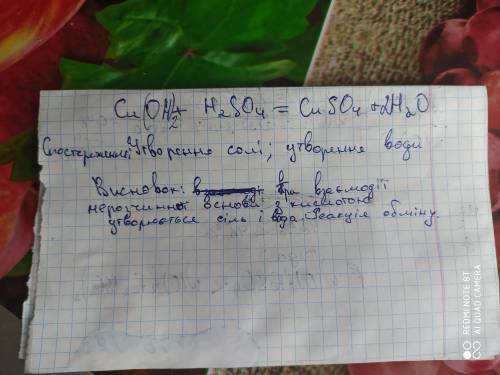 Cu(OH)2 + H2SO4 = CuSO4 + 2H2O
Спостереження: Утворення солі; утворення води
Висновок: при взаємодії
нерозчинної основи з кислотою
утворюється сіль і вода. Реакція обміну.
REDMI NOTE 8T
AI QUAD CAMERA